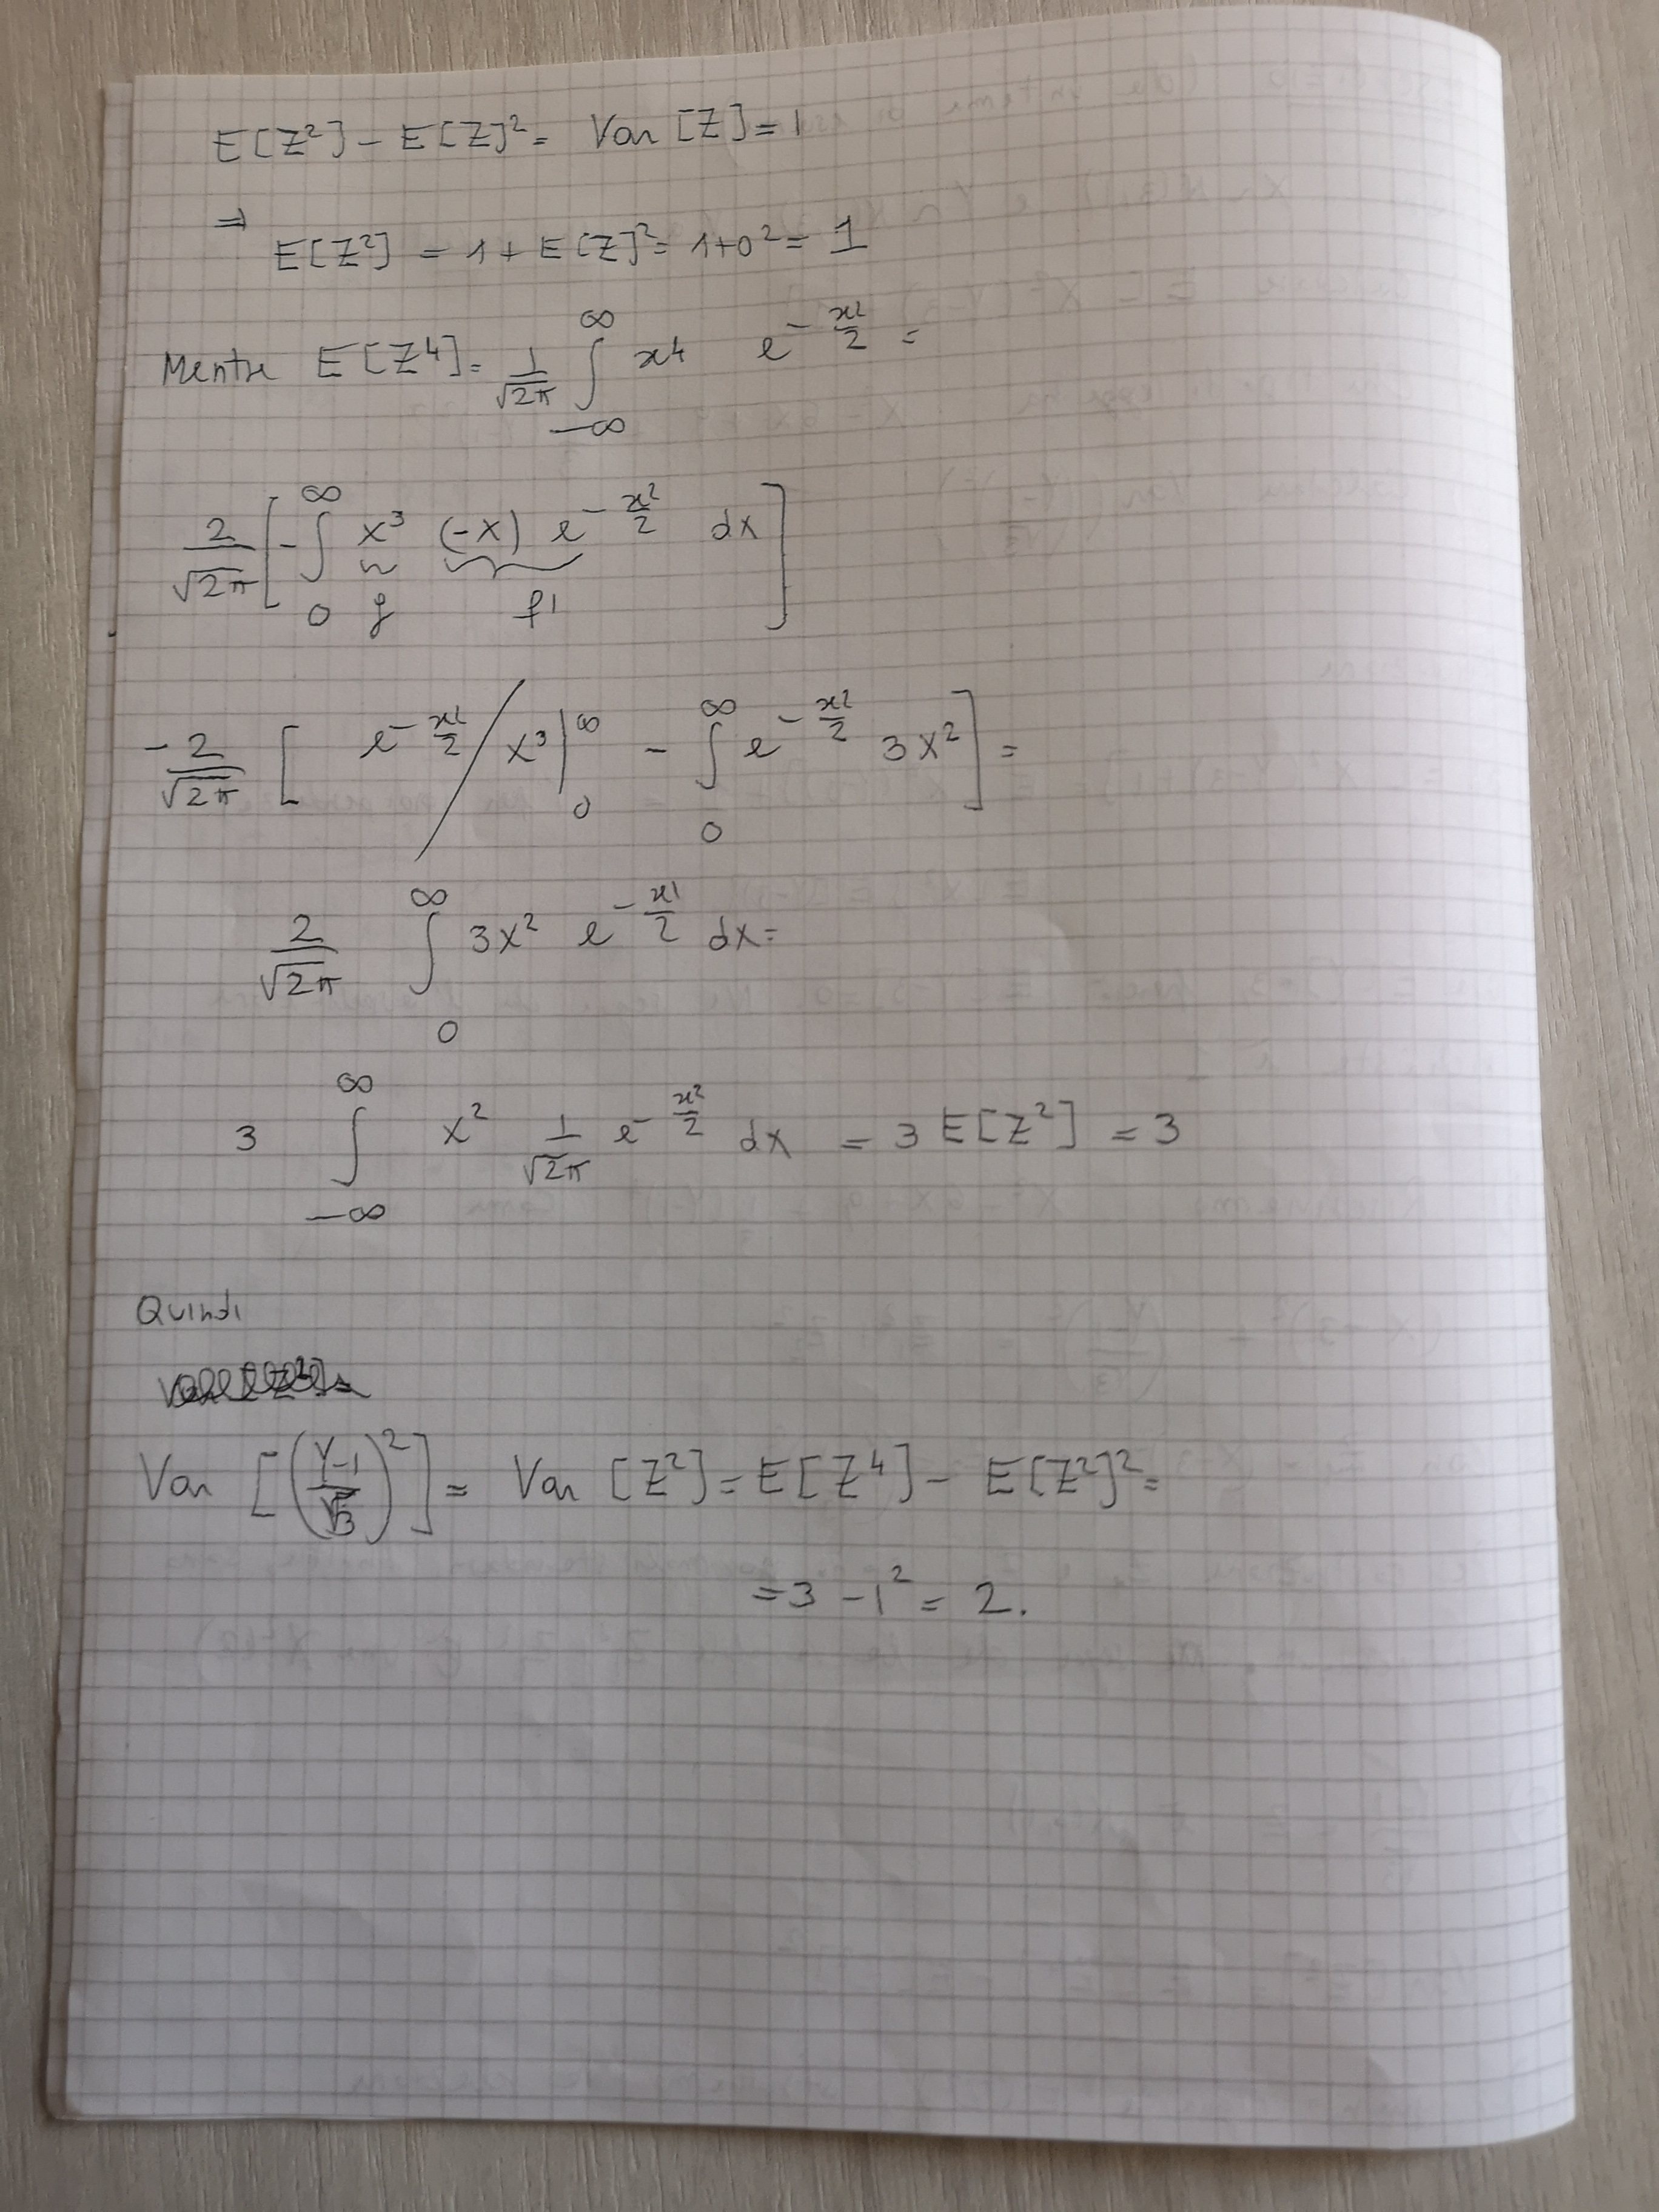 E[Z²] - E[Z]² = Var [Z] = 1
⇒ E[Z²] = 1 + E[Z]² = 1+0² = 1
Mentre E[Z⁴] = 1/√2π ∫_{-∞}^{∞} x⁴ e^{-x²/2} =
2/√2π [ - ∫_0^∞ x³ (-x) e^{-x²/2} dx ]
g f'
-2/√2π [ e^{-x²/2} x³ |_0^∞ - ∫_0^∞ e^{-x²/2} 3x² ] =
2/√2π ∫_0^∞ 3x² e^{-x²/2} dx =
3 ∫_{-∞}^{∞} x² 1/√2π e^{-x²/2} dx = 3 E[Z²] = 3
Quindi
Var [ ( (Y-1)/√3 )² ] = Var [Z²] = E[Z⁴] - E[Z²]² =
= 3 - 1² = 2.